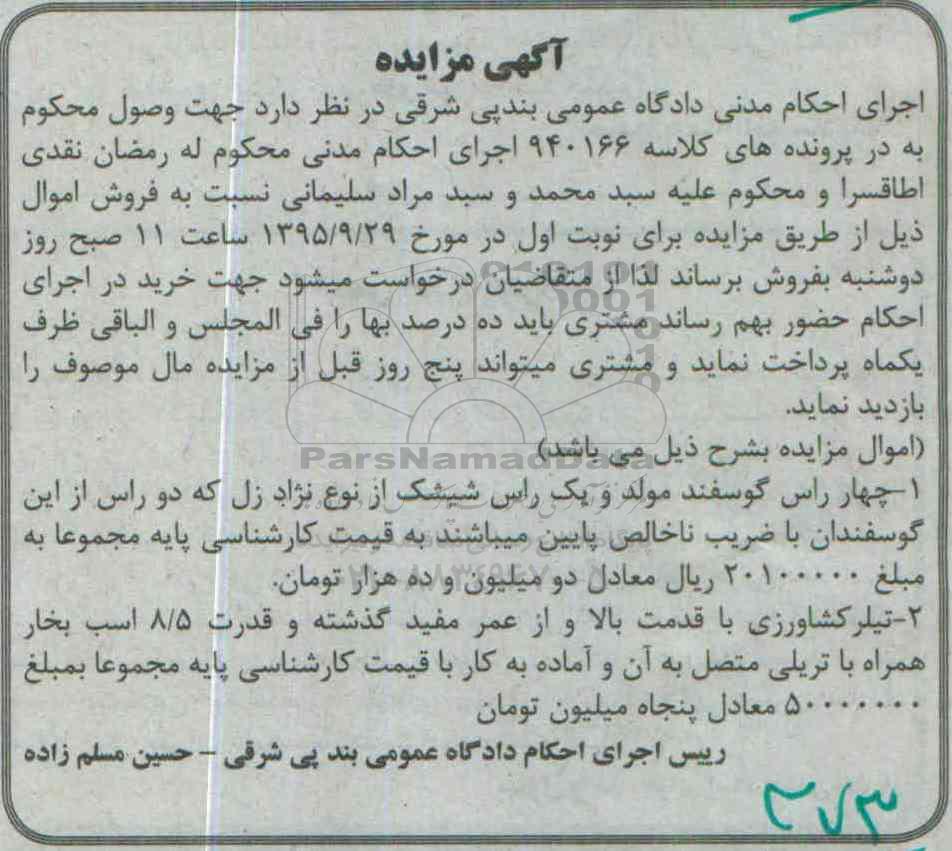 آگهی مزایده
اجرای احکام مدنی دادگاه عمومی بندپی شرقی در نظر دارد جهت وصول محکوم
به در پرونده های کلاسه ۹۴۰۱۶۶ اجرای احکام مدنی محکوم له رمضان نقدی
اطاقسرا و محکوم علیه سبد محمد و سبد مراد سلیمانی نسبت به فروش اموال
ذیل از طریق مزایده برای نوبت اول در مورخ ۱۳۹۵/۹/۲۹ ساعت ۱۱ صبح روز
دوشنبه بفروش برساند لذا از متقاضیان درخواست میشود جهت خرید در اجرای
احکام حضور بهم رساند مشتری باید ده درصد بها را فی المجلس و الباقی ظرف
یکماه پرداخت نماید و مشتری میتواند پنج روز قبل از مزایده مال موصوف را
بازدید نماید.
(اموال مزایده بشرح ذیل می باشد)
ParsNamadData
۱-چهار راس گوسفند مولد و یک راس شیشک از نوع نژاد زل که دو راس از این
گوسفندان با ضریب ناخالص پایین میباشند به قیمت کارشناسی پایه مجموعا به
مبلغ ۲۰۱۰۰۰۰۰ ریال معادل دو میلیون و ده هزار تومان.
۲-تیلرکشاورزی با قدمت بالا و از عمر مفید گذشته و قدرت ۸/۵ اسب بخار
همراه با تریلی متصل به آن و آماده به کار با قیمت کارشناسی پایه مجموعا بمبلغ
۵۰۰۰۰۰۰۰ معادل پنجاه میلیون تومان
رییس اجرای احکام دادگاه عمومی بند پی شرقی - حسین مسلم زاده
۳۷۳